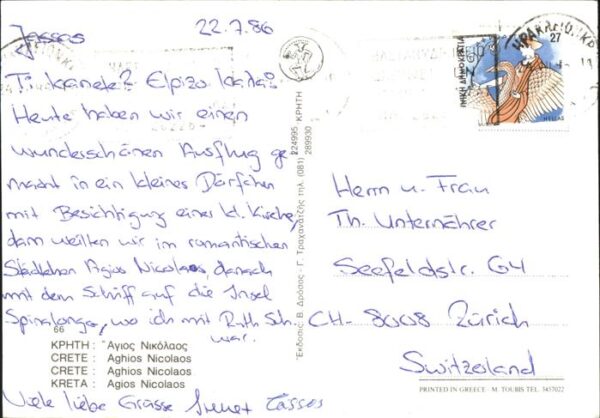 Jassas 22.7.86
Ti kanete? Elpizo kala?
Heute haben wir einen
wunderschönen Ausflug ge
macht in ein kleines Dörfchen
mit Besichtigung einer kl. Kirche,
dann weilten wir im romantischen
Städtchen Agios Nicolaos, danach
mit dem Schiff auf die Insel
Spinalonga, wo ich mit Ruth Sch.
war.
66
ΚΡΗΤΗ : Ἅγιος Νικόλαος
CRETE : Aghios Nicolaos
CRETE : Aghios Nicolaos
KRETA : Agios Nicolaos
Viele liebe Grüsse
Ἔκδοσις: Β. Δρόσος - Γ. Τραχανατζής τηλ. (081) 224995 ΚΡΗΤΗ
289930
ΗΡΑΚΛΕΙΟΝ
27
HELLAS
Herrn u. Frau
Th. Unternährer
Seefeldstr. 64
CH-8008 Zürich
Switzerland
PRINTED IN GREECE - M. TOUBIS TEL. 5457022